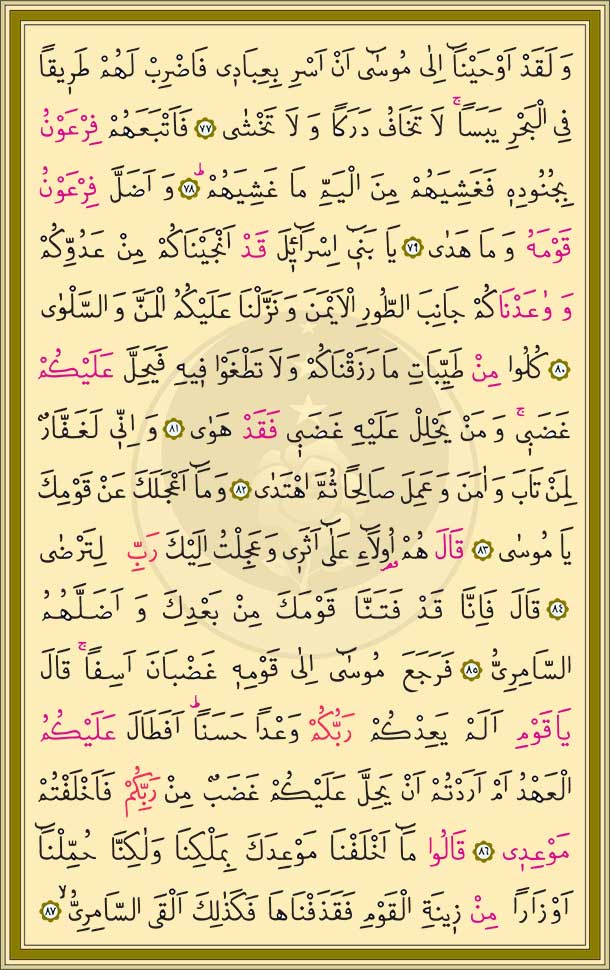 وَلَقَدْ اَوْحَيْنَٓا اِلٰى مُوسٰٓى اَنْ اَسْرِ بِعِبَاد۪ي فَاضْرِبْ لَهُمْ طَر۪يقًا
فِي الْبَحْرِ يَبَسًاۚ لَا تَخَافُ دَرَكًا وَلَا تَخْشٰى ﴿٧٧﴾ فَاَتْبَعَهُمْ فِرْعَوْنُ
بِجُنُودِه۪ فَغَشِيَهُمْ مِنَ الْيَمِّ مَا غَشِيَهُمْۜ ﴿٧٨﴾ وَاَضَلَّ فِرْعَوْنُ
قَوْمَهُ وَمَا هَدٰى ﴿٧٩﴾ يَا بَن۪ٓي اِسْرَٓائ۪لَ قَدْ اَنْجَيْنَاكُمْ مِنْ عَدُوِّكُمْ
وَوٰعَدْنَاكُمْ جَانِبَ الطُّورِ الْاَيْمَنَ وَنَزَّلْنَا عَلَيْكُمُ الْمَنَّ وَالسَّلْوٰى
﴿٨٠﴾ كُلُوا مِنْ طَيِّبَاتِ مَا رَزَقْنَاكُمْ وَلَا تَطْغَوْا ف۪يهِ فَيَحِلَّ عَلَيْكُمْ
غَضَب۪يۚ وَمَنْ يَحْلِلْ عَلَيْهِ غَضَب۪ي فَقَدْ هَوٰى ﴿٨١﴾ وَاِنّ۪ي لَغَفَّارٌ
لِمَنْ تَابَ وَاٰمَنَ وَعَمِلَ صَالِحًا ثُمَّ اهْتَدٰى ﴿٨٢﴾ وَمَٓا اَعْجَلَكَ عَنْ قَوْمِكَ
يَا مُوسٰى ﴿٨٣﴾ قَالَ هُمْ اُولَٓاءِ عَلٰٓى اَثَر۪ي وَعَجِلْتُ اِلَيْكَ رَبِّ لِتَرْضٰى
﴿٨٤﴾ قَالَ فَاِنَّا قَدْ فَتَنَّا قَوْمَكَ مِنْ بَعْدِكَ وَاَضَلَّهُمُ
السَّامِرِيُّ ﴿٨٥﴾ فَرَجَعَ مُوسٰٓى اِلٰى قَوْمِه۪ غَضْبَانَ اَسِفًاۚ قَالَ
يَا قَوْمِ اَلَمْ يَعِدْكُمْ رَبُّكُمْ وَعْدًا حَسَنًاۜ اَفَطَالَ عَلَيْكُمُ
الْعَهْدُ اَمْ اَرَدْتُمْ اَنْ يَحِلَّ عَلَيْكُمْ غَضَبٌ مِنْ رَبِّكُمْ فَاَخْلَفْتُمْ
مَوْعِد۪ي ﴿٨٦﴾ قَالُوا مَٓا اَخْلَفْنَا مَوْعِدَكَ بِمَلْكِنَا وَلٰكِنَّا حُمِّلْنَٓا
اَوْزَارًا مِنْ ز۪ينَةِ الْقَوْمِ فَقَذَفْنَاهَا فَكَذٰلِكَ اَلْقَى السَّامِرِيُّۙ ﴿٨٧﴾